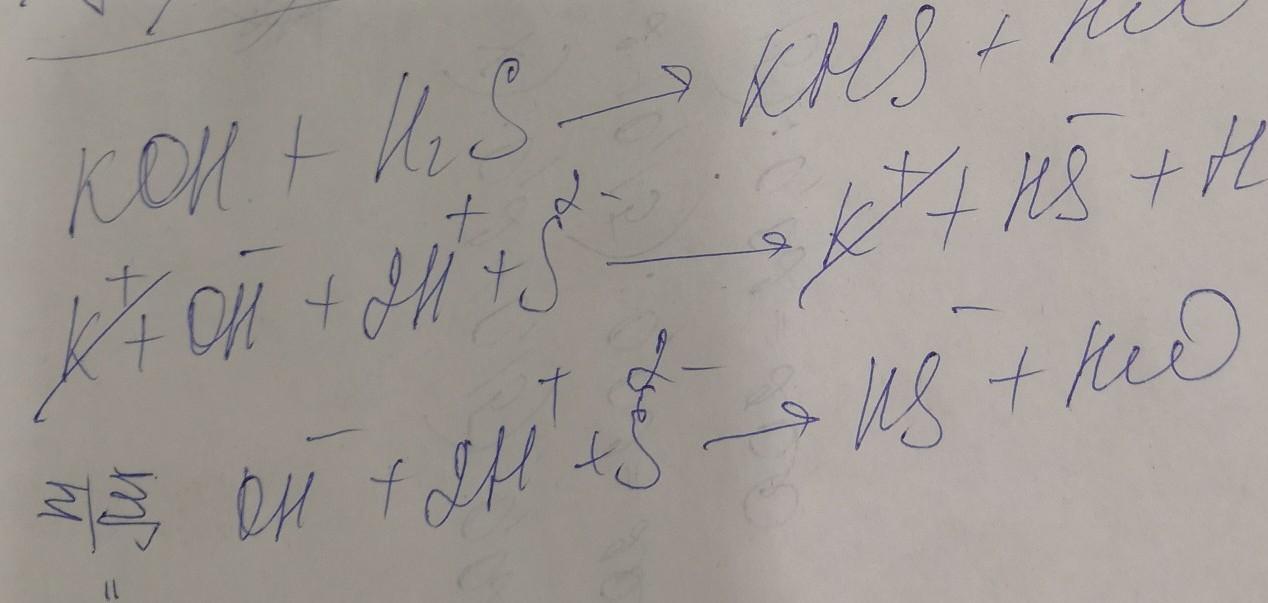 KOH + H₂S → KHS +
K⁺ + OH⁻ + 2H⁺ + S²⁻ → K⁺ + HS⁻ + H
OH⁻ + 2H⁺ + S²⁻ → HS⁻ +